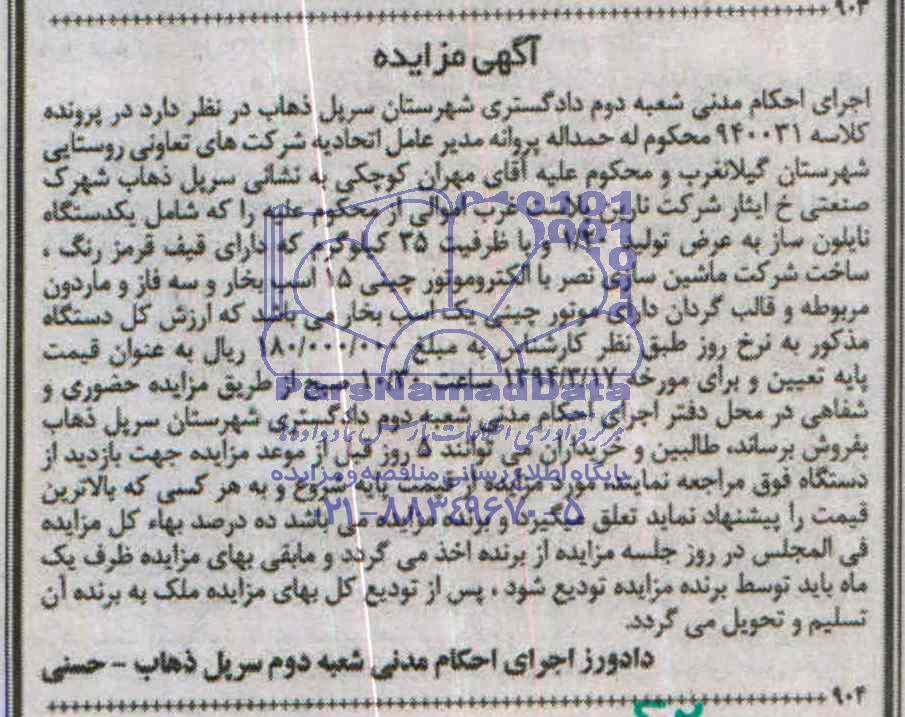 ۹۰۳
آگهی مزایده
اجرای احکام مدنی شعبه دوم دادگستری شهرستان سرپل ذهاب در نظر دارد در پرونده
کلاسه ۹۴۰۰۳۱ محکوم له حمداله پروانه مدیر عامل اتحادیه شرکت های تعاونی روستایی
شهرستان گیلانغرب و محکوم علیه آقای مهران کوچکی به نشانی سرپل ذهاب شهرک
صنعتی خ ایثار شرکت نارین پلاست غرب اموالی از محکوم علیه را که شامل یکدستگاه
نایلون ساز به عرض تولید و با ظرفیت ۳۵ کیلوگرم که دارای قیف قرمز رنگ ،
ساخت شرکت ماشین سازی نصر با الکتروموتور چینی ۱۵ اسب بخار و سه فاز و ماردون
مربوطه و قالب گردان دارای موتور چینی یک اسب بخار می باشد که ارزش کل دستگاه
مذکور به نرخ روز طبق نظر کارشناس به مبلغ ۱۸۰/۰۰۰/۰۰۰ ریال به عنوان قیمت
پایه تعیین و برای مورخه ۱۳۹۴/۳/۱۷ ساعت ۱۰/۳۰ صبح از طریق مزایده حضوری و
شفاهی در محل دفتر اجرای احکام مدنی شعبه دوم دادگستری شهرستان سرپل ذهاب
بفروش برساند، طالبین و خریداران می توانند ۵ روز قبل از موعد مزایده جهت بازدید از
دستگاه فوق مراجعه نمایند، مورد مزایده از قیمت پایه شروع و به هر کسی که بالاترین
قیمت را پیشنهاد نماید تعلق میگیرد و برنده مزایده می باشد ده درصد بهاء کل مزایده
فی المجلس در روز جلسه مزایده از برنده اخذ می گردد و مابقی بهای مزایده ظرف یک
ماه باید توسط برنده مزایده تودیع شود ، پس از تودیع کل بهای مزایده ملک به برنده آن
تسلیم و تحویل می گردد.
دادورز اجرای احکام مدنی شعبه دوم سرپل ذهاب - حسنی
۹۰۴
ParsNamadData
پایگاه اطلاع رسانی مناقصه و مزایده
۰۲۱-۸۸۳۴۹۶۷۰-۵